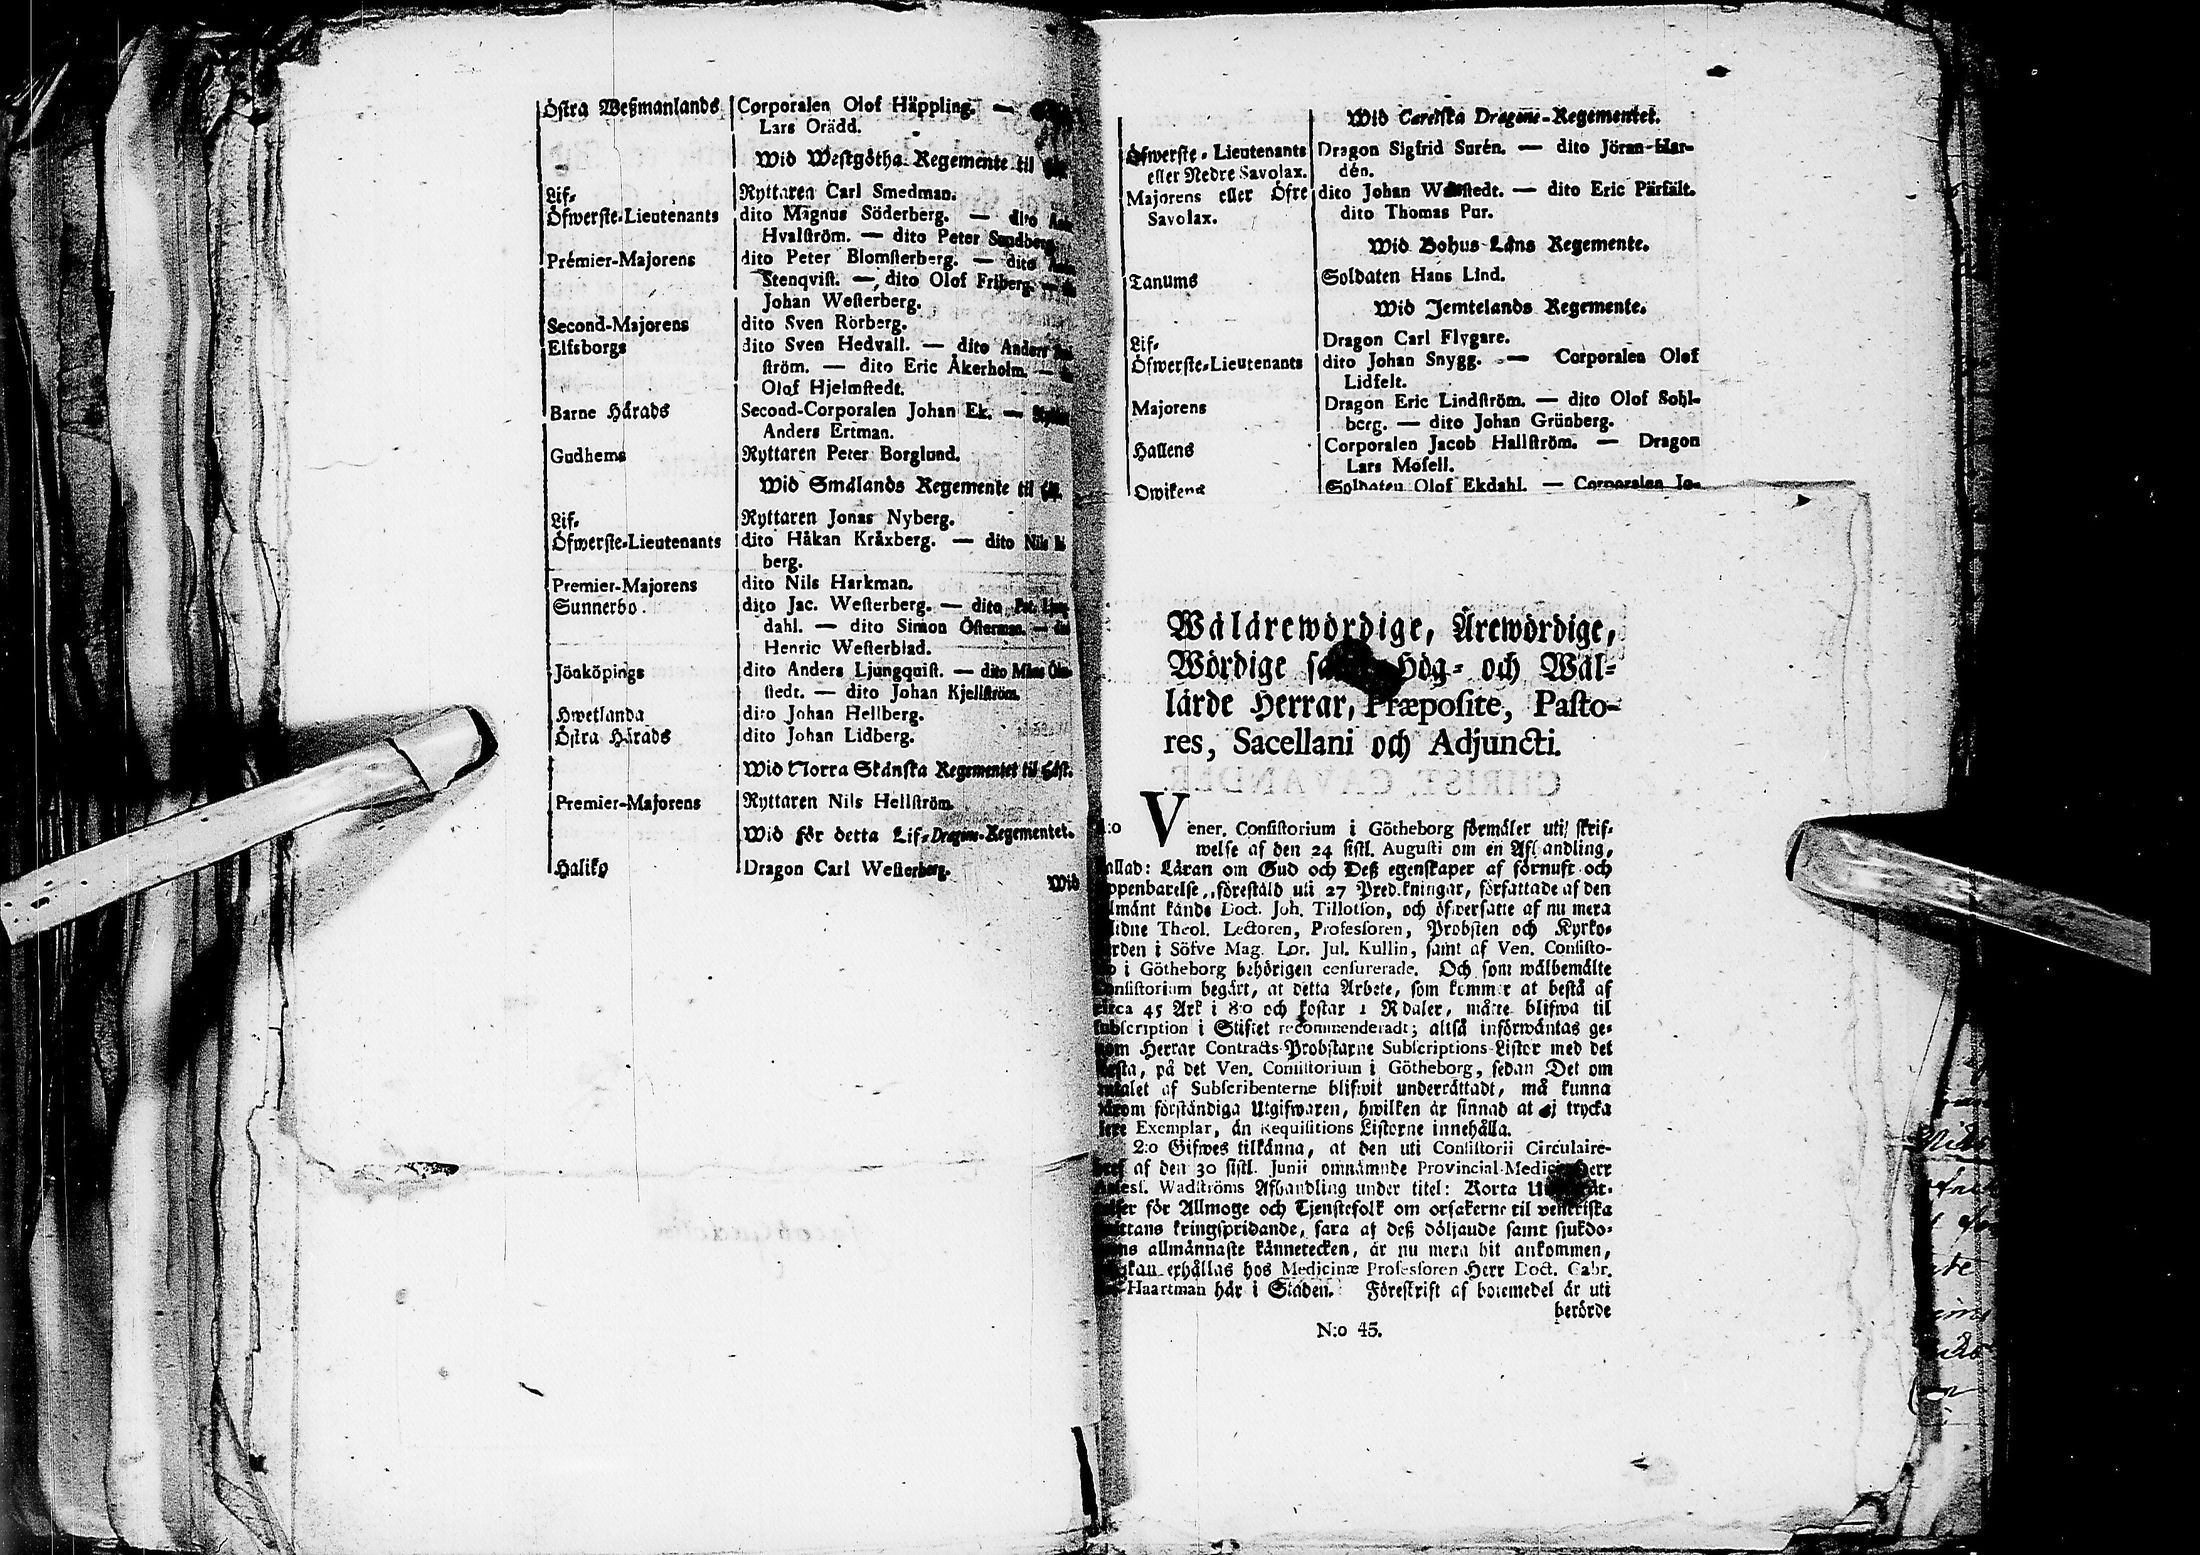 Östra Weßmanlands Corporalen Olof Häppling. —
Lars Orädd.
Wid Westgötha Regemente til
Lif- Ryttaren Carl Smedman.
Öfwerste-Lieutenants dito Magnus Söderberg. — dito
Hvalström. — dito Peter Sundberg
Prémier-Majorens dito Peter Blomsterberg. — dito
Stenqvist. — dito Olof Friberg. —
Johan Westerberg.
Second-Majorens dito Sven Rörberg.
Elfsborgs dito Sven Hedvall. — dito Anders
ström. — dito Eric Åkerholm. —
Olof Hjelmstedt.
Barne Härads Second-Corporalen Johan Ek. —
Anders Ertman.
Gudhems Ryttaren Peter Borglund.
Wid Smålands Regemente til
Lif- Ryttaren Jonas Nyberg.
Öfwerste-Lieutenants dito Håkan Kråxberg. — dito Nils
berg.
Premier-Majorens dito Nils Harkman.
Sunnerbo. dito Jac. Westerberg. — dito Pet.
dahl. — dito Simon Österman. —
Henric Westerblad.
Jönköpings dito Anders Ljungquist. — dito Måns
stedt. — dito Johan Kjellström.
Hwetlanda dito Johan Hellberg.
Östra Härads dito Johan Lidberg.
Wid Norra Skånska Regementet til Häst.
Premier-Majorens Ryttaren Nils Hellström.
Wid för detta Lif-Dragone-Regementet.
Haliko Dragon Carl Westerberg.
Wid
Wid Carelska Dragone-Regementet.
Öfwerste-Lieutenants Dragon Sigfrid Surén. — dito Jöran Har-
eller Nedre Savolax. dén.
Majorens eller Öfre dito Johan — dito Eric Pärfält.
Savolax. dito Thomas Pur.
Wid Bohus-Läns Regemente.
Tanums Soldaten Hans Lind.
Wid Jemtelands Regemente.
Lif- Dragon Carl Flygare.
Öfwerste-Lieutenants dito Johan Snygg. — Corporalen Olof
Lidfelt.
Majorens Dragon Eric Lindström. — dito Olof Sohl-
berg. — dito Johan Grünberg.
Hallens Corporalen Jacob Hallström. — Dragon
Lars Mosell.
Owikens Soldaten Olof Ekdahl. — Corporalen Jo-
Wälärewördige, Ärewördige,
Wördige Hög- och Wäl-
lärde Herrar, Præposite, Pasto-
res, Sacellani och Adjuncti.
Vener. Consistorium i Götheborg förmäler uti skrif-
welse af den 24 sistl. Augusti om en Afhandling,
kallad: Läran om Gud och Deß egenskaper af förnuft och
uppenbarelse, förestäld uti 27 Predikningar, författade af den
allmänt kände Doct. Joh. Tillotson, och öfwersatte af nu mera
Theol. Lectoren, Professoren, Probsten och Kyrko-
herden i Söfve Mag. Lor. Jul. Kullin, samt af Ven. Consisto-
rio i Götheborg behörigen censurerade. Och som wälbemälte
Consistorium begärt, at detta Arbete, som kommer at bestå af
circa 45 Ark i 8:o och kostar 1 R daler, måtte blifwa til
subscription i Stiftet recommenderadt; altså införwäntas ge-
nom Herrar Contracts-Probstarne Subscriptions-Listor med det
första, på det Ven. Consistorium i Götheborg, sedan Det om
antalet af Subscribenterne blifwit underrättadt, må kunna
härom förständiga Utgifwaren, hwilken är sinnad at ej trycka
flere Exemplar, än Requisitions Listorne innehålla.
2:o Gifwes tilkänna, at den uti Consistorii Circulaire-
bref af den 30 sistl. Junii omnämnde Provincial-Medici Herr
Wadströms Afhandling under titel: Korta
för Allmoge och Tjenstefolk om orsakerne til veneriska
smittans kringspridande, fara af deß döljande samt sjukdo-
mens allmännaste kännetecken, är nu mera hit ankommen,
kan erhållas hos Medicinæ Professoren Herr Doct. Gabr.
Haartman här i Staden. Föreskrift af botemedel är uti
berörde
N:o 45.